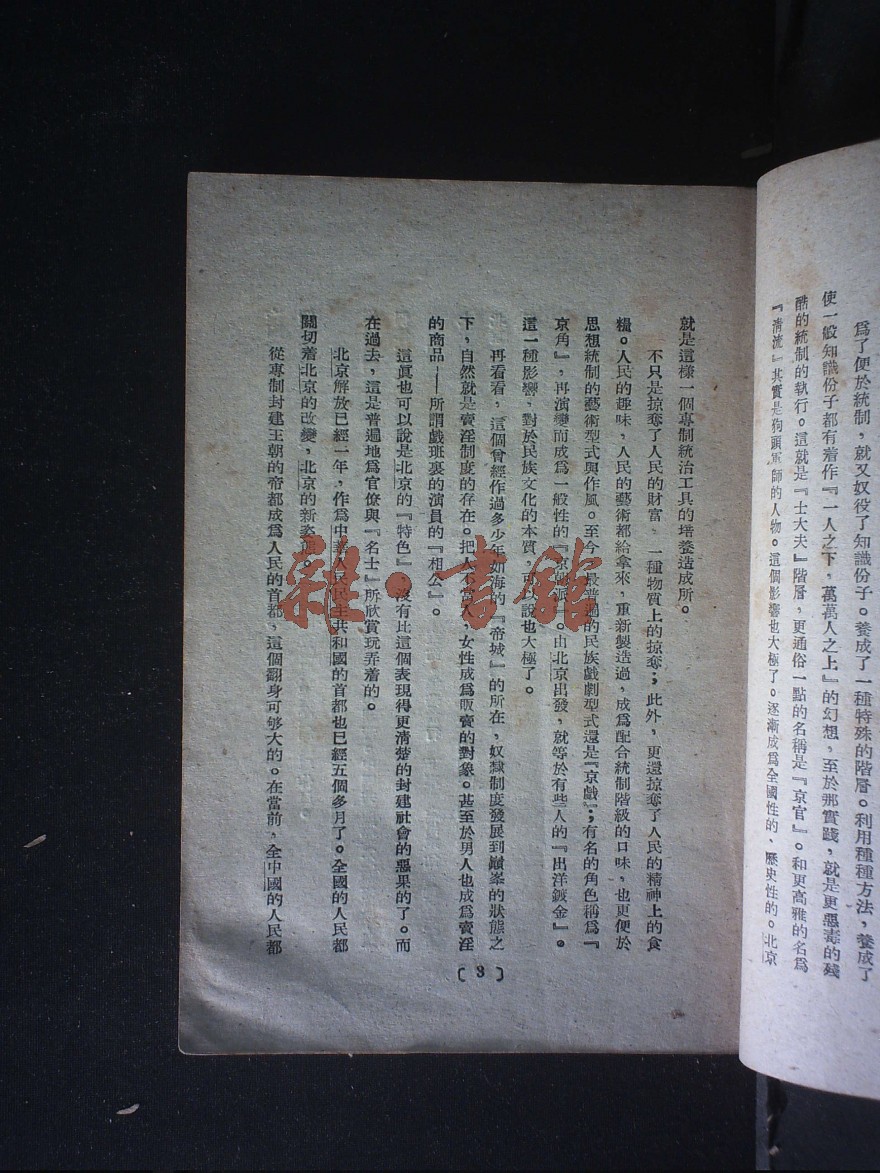 爲了便於統制，就又奴役了知識份子。養成了一種特殊的階層。利用種種方法，養成了
使一般知識份子都有着作『一人之下，萬萬人之上』的幻想，至於那實踐，就是更惡毒的殘
酷的統制的執行。這就是『士大夫』階層，更通俗一點的名稱是『京官』。和更高雅的名爲
『淸流』其實是狗頭軍師的人物。這個影響也大極了。逐漸成爲全國性的、歷史性的。北京
就是這樣一個專制統治工具的培養造成所。
不只是掠奪了人民的財富，一種物質上的掠奪；此外，更還掠奪了人民的精神上的食
糧。人民的趣味，人民的藝術都給拿來，重新製造過，成爲配合統制階級的口味，也更便於
思想統制的藝術型式與作風。至今，最普遍的民族戲劇型式還是『京戲』；有名的角色稱爲『
京角』，再演變而成爲一般性的『京派』。由北京出發，就等於有些人的『出洋鍍金』。
這一種影響，對於民族文化的本質，可說也大極了。
再看看，這個曾經作過多少年如海的『帝城』的所在，奴隸制度發展到巔峯的狀態之
下，自然就是賣淫制度的存在。把人不當人，女性成爲販賣的對象。甚至於男人也成爲賣淫
的商品——所謂戲班裏的演員的『相公』。
這眞也可以說是北京的『特色』，沒有比這個表現得更淸楚的封建社會的惡果的了。而
在過去，這是普遍地爲官僚與『名士』所欣賞玩弄着的。
北京解放已經一年，作爲中華人民民主共和國的首都也已經五個多月了。全國的人民都
關切着北京的改變，北京的新姿態。
從專制封建王朝的帝都成爲人民的首都，這個翻身可够大的。在當前，全中國的人民都
〔3〕
雜·書館